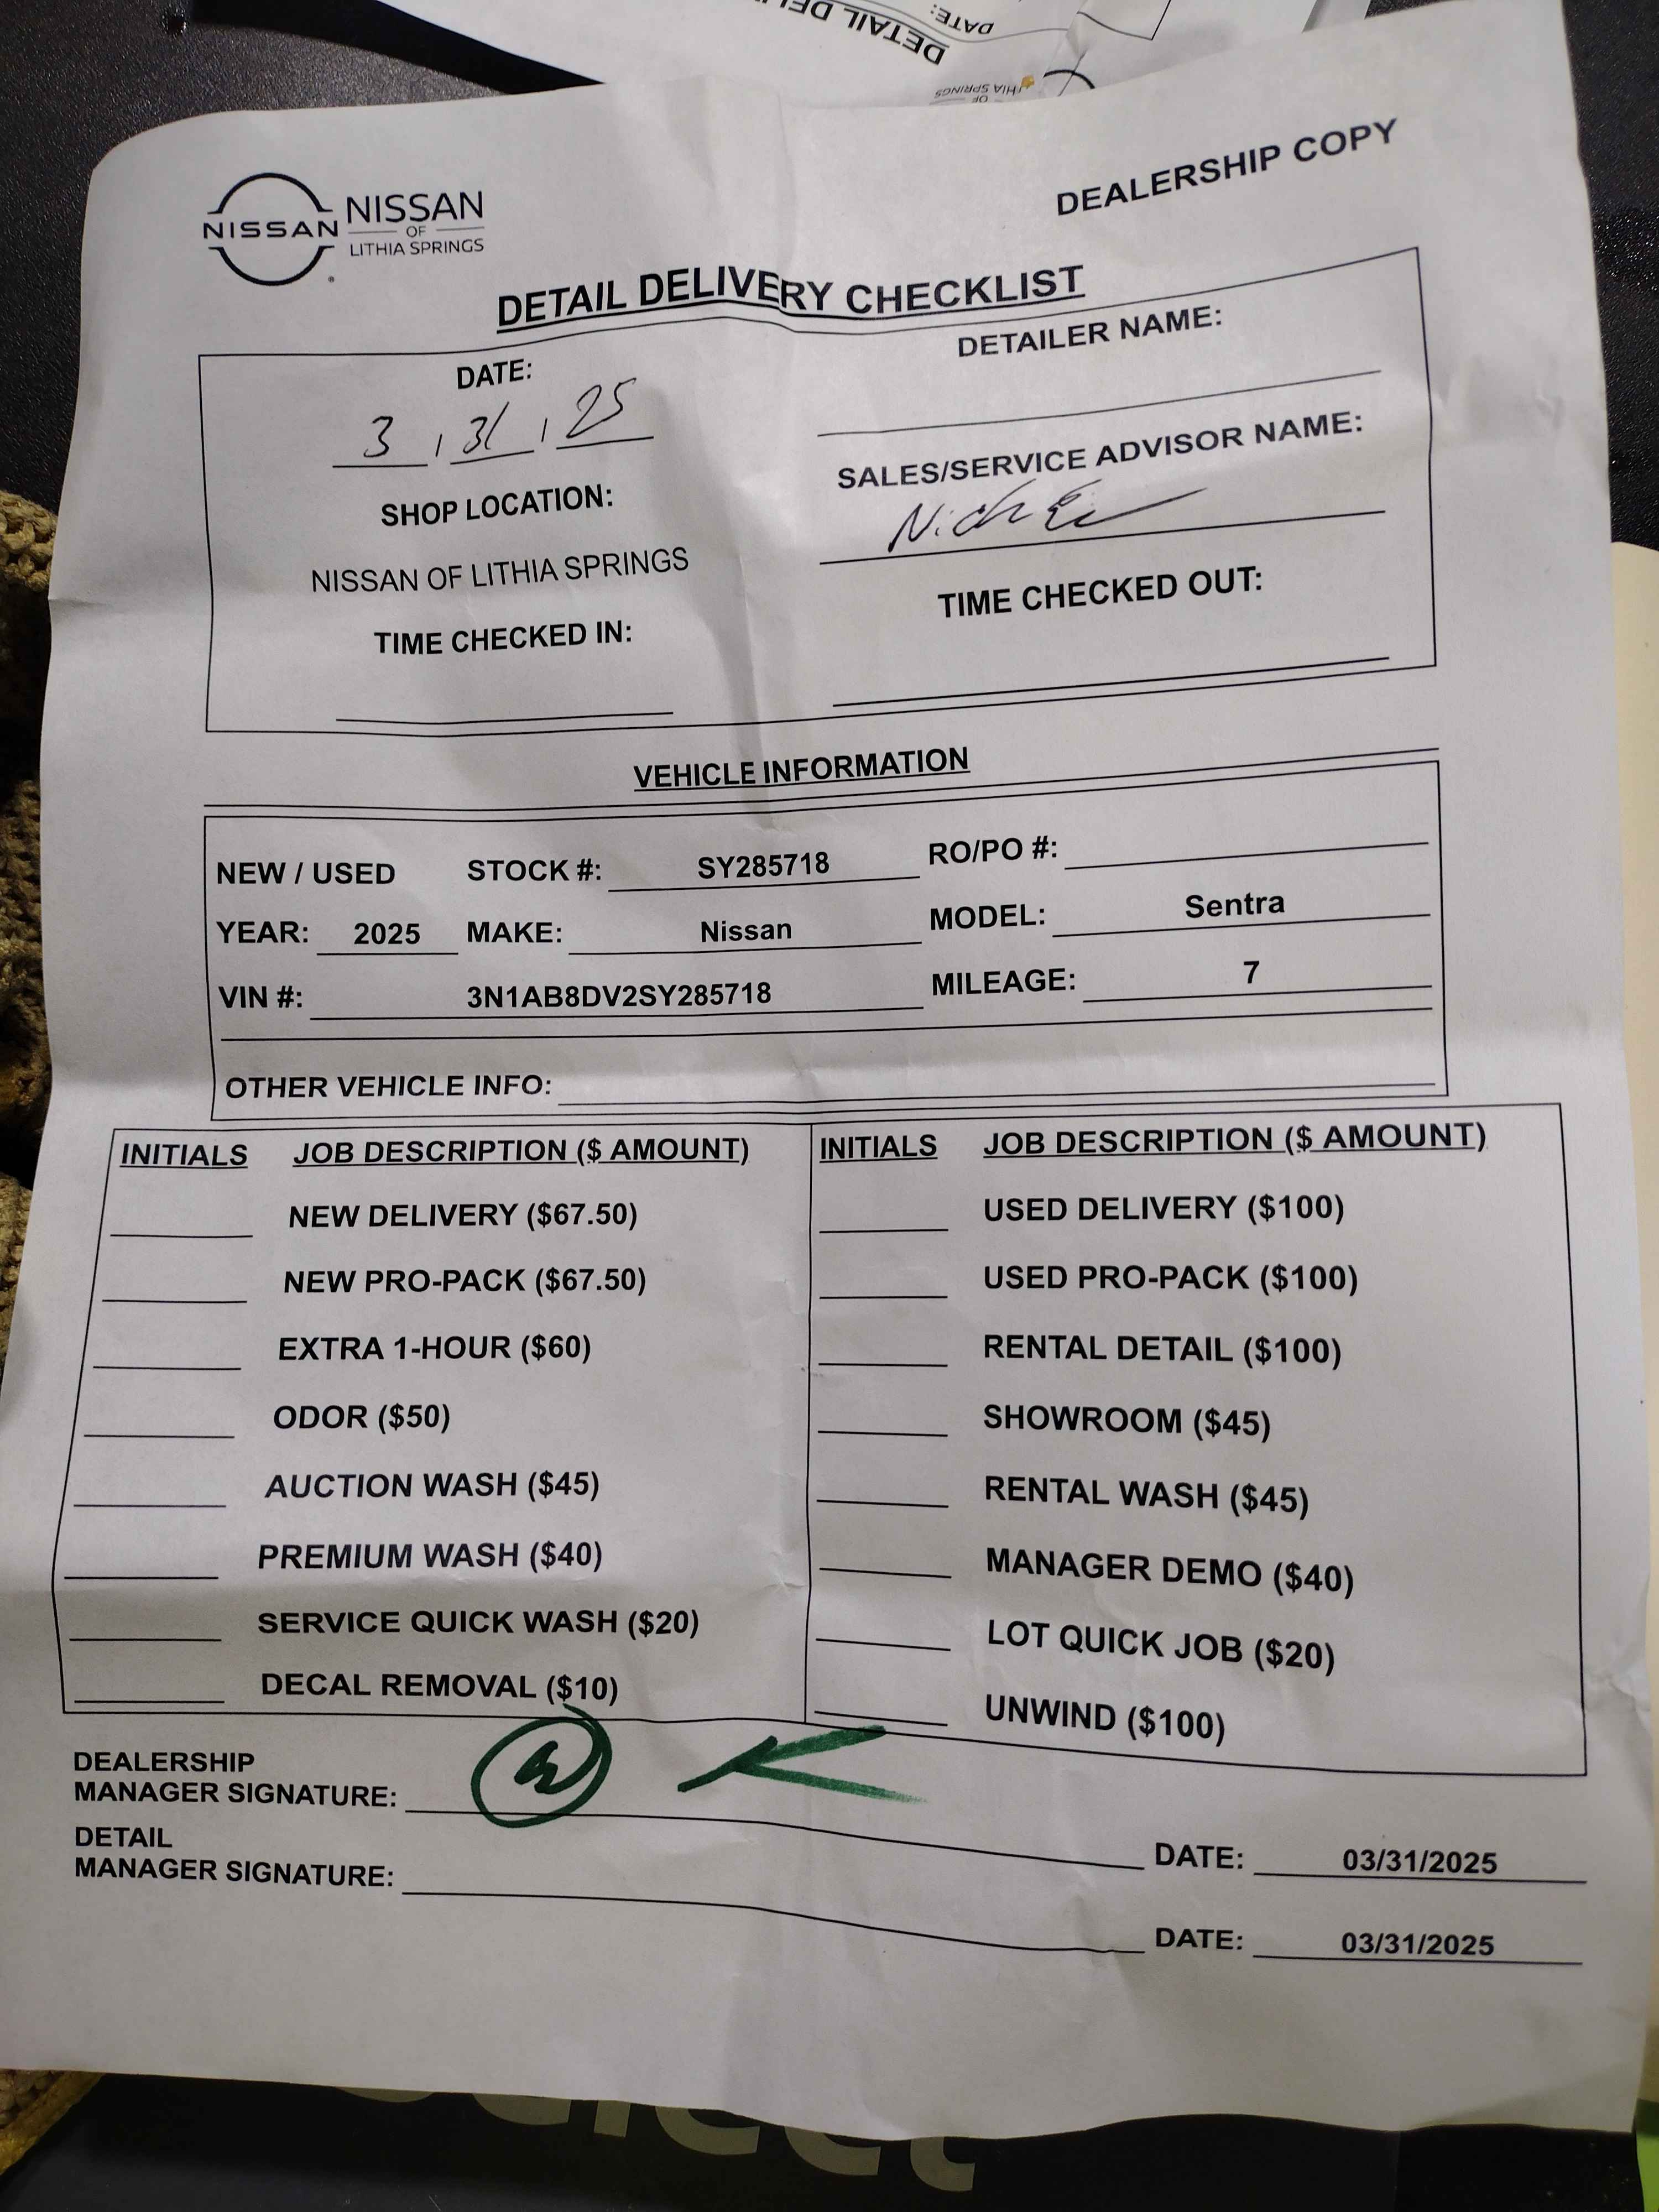 DETAIL DEL
DATE:
OF
HIA SPRINGS
DEALERSHIP COPY
NISSAN
NISSAN
OF
LITHIA SPRINGS
DETAIL DELIVERY CHECKLIST
DATE:
3 / 31 / 25
DETAILER NAME:
SHOP LOCATION:
NISSAN OF LITHIA SPRINGS
SALES/SERVICE ADVISOR NAME:
Nick
TIME CHECKED IN:
TIME CHECKED OUT:
VEHICLE INFORMATION
NEW / USED STOCK #: SY285718 RO/PO #:
YEAR: 2025 MAKE: Nissan MODEL: Sentra
VIN #: 3N1AB8DV2SY285718 MILEAGE: 7
OTHER VEHICLE INFO:
INITIALS JOB DESCRIPTION ($ AMOUNT)
NEW DELIVERY ($67.50)
NEW PRO-PACK ($67.50)
EXTRA 1-HOUR ($60)
ODOR ($50)
AUCTION WASH ($45)
PREMIUM WASH ($40)
SERVICE QUICK WASH ($20)
DECAL REMOVAL ($10)
INITIALS JOB DESCRIPTION ($ AMOUNT)
USED DELIVERY ($100)
USED PRO-PACK ($100)
RENTAL DETAIL ($100)
SHOWROOM ($45)
RENTAL WASH ($45)
MANAGER DEMO ($40)
LOT QUICK JOB ($20)
UNWIND ($100)
DEALERSHIP
MANAGER SIGNATURE:
DATE: 03/31/2025
DETAIL
MANAGER SIGNATURE:
DATE: 03/31/2025